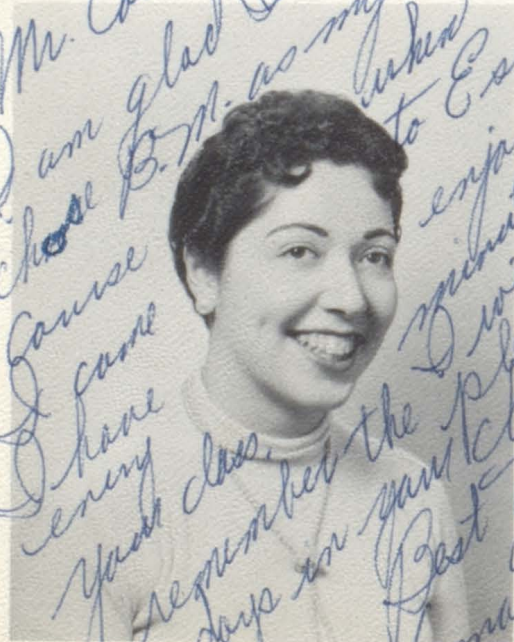 Mr. Co
I am glad I
chose B.M. as my
course when
I came to Es
I have enjo
every minu
your class. I wi
remember the pl
days in your cl
Best